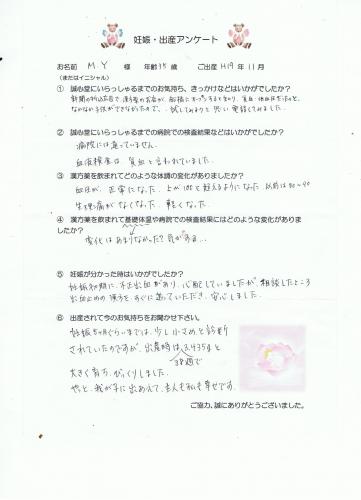 妊娠・出産アンケート
お名前 M.Y 様 年齢35歳 ご出産 H19年11月
(またはイニシャル)
① 誠心堂にいらっしゃるまでのお気持ち、きっかけなどはいかがでしたか?
新聞の折込広告で、漢方薬のお店が、船橋にオープンすると知り、貧血・低血圧だったのと、
なかなか子供ができなかったので、試してみようと思い、電話してみました。
② 誠心堂にいらっしゃるまでの病院での検査結果などはいかがでしたか?
病院には通っていません。
血液検査は 貧血と言われていました。
③ 漢方薬を飲まれてどのような体調の変化がありましたか?
血圧が、正常になった。上が100を超えるようになった 以前は80〜90
生理痛がなくなった。軽くなった。
④ 漢方薬を飲まれて基礎体温や病院での検査結果にはどのような変化がありま
したか?
変化はあまりなかった?気がする…
⑤ 妊娠が分かった時はいかがでしたか?
妊娠初期に、不正出血があり、心配していましたが、相談したところ
出血止めの漢方を、すぐに送っていただき、安心しました。
⑥ 出産されて今のお気持ちをお聞かせ下さい。
妊娠5ヶ月ぐらいまでは、少し小さめと診断
されていたのですが、出産時は、3,435gと
38週で
大きく育ち、びっくりしました。
やっと、我が子に出あえて、主人も私も幸せです。
ご協力、誠にありがとうございました。